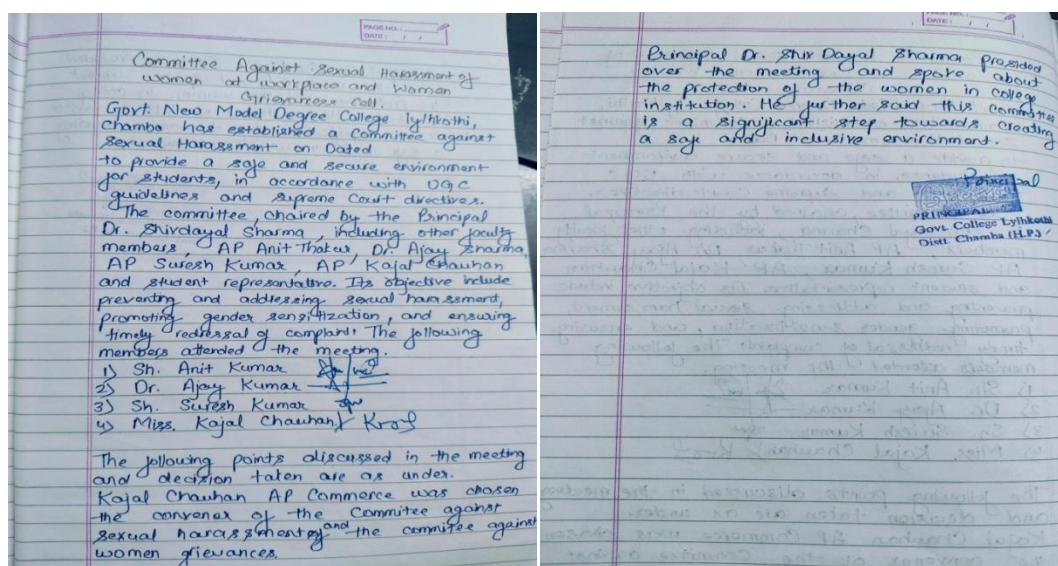 PAGE NO.:
DATE: / /
Committee Against Sexual Harassment of
women at workplace and Women
Grievances Cell.
Govt. New Model Degree College lylhkothi,
Chamba has established a Committee against
Sexual Harassment on Dated
to provide a safe and secure environment
for students, in accordance with UGC
guidelines and supreme Court directives.
The committee, chaired by the Principal
Dr. Shivdayal Sharma, including other faculty
members, AP Anit Thakur, Dr. Ajay Sharma,
AP Suresh Kumar, AP Kajal Chauhan
and student representative. Its objective include
preventing and addressing sexual harassment,
promoting gender sensitization, and ensuring
timely redressal of complaint. The following
members attended the meeting.
1) Sh. Anit Kumar
2) Dr. Ajay Kumar
3) Sh. Suresh Kumar
4) Miss. Kajal Chauhan
The following points discussed in the meeting
and decision taken are as under.
Kajal Chauhan AP Commerce was chosen
the convener of the Commitee against
sexual harassment and the commitee against
women grievances.
DATE: / /
Principal Dr. Shiv Dayal Sharma presided
over the meeting and spoke about
the protection of the women in college
institution. He further said this committee
is a significant step towards creating
a safe and inclusive environment.
Principal
PRINCIPAL
Govt. College Lylhkothi
Distt. Chamba (H.P.)